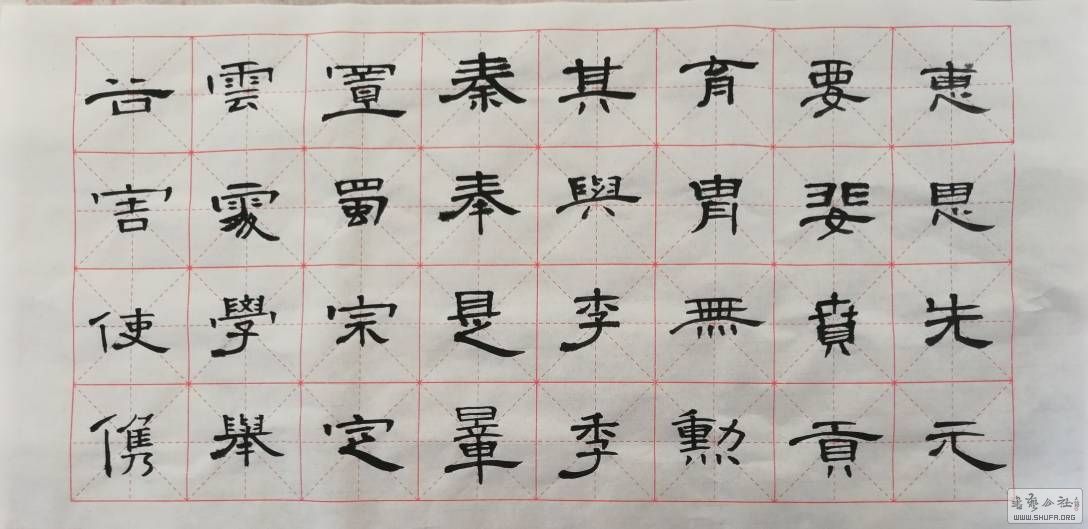 惠思先元
要婓賁貢
育胄無勳
其與李季
秦奉是暈
置蜀宗定
雲學舉
害使㑺
書藝公社
WWW.SHUFA.ORG